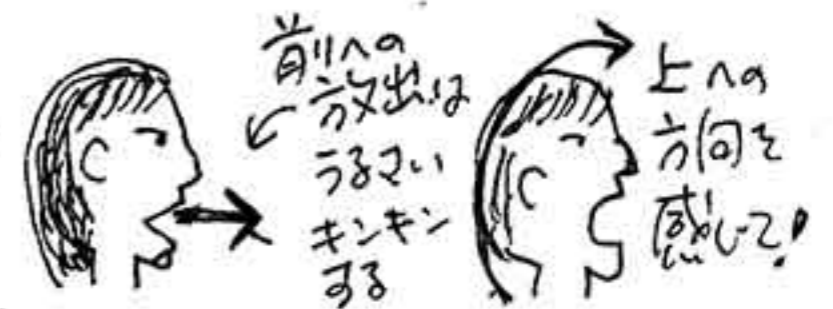 前への
放出は
うるさい
キンキン
する
上への
方向を
感じて!